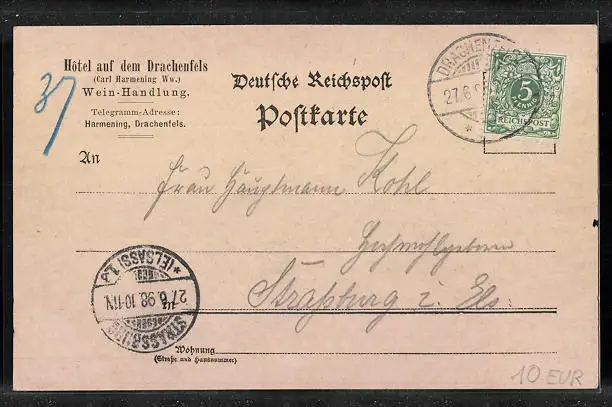 Hôtel auf dem Drachenfels
(Carl Harmening Ww.)
Wein-Handlung.
Telegramm-Adresse:
Harmening, Drachenfels.
37
Deutsche Reichspost
Postkarte
DRACHENFELS
27.6.
5
PFENNIG
REICHSPOST
An
Frau Hauptmann Kohl
Hochwohlgeboren
in
Straßburg i. Els.
STRASSBURG
27.6.98.10-11N.
*(ELSASS)1.
Wohnung
(Straße und Hausnummer)
10 EUR